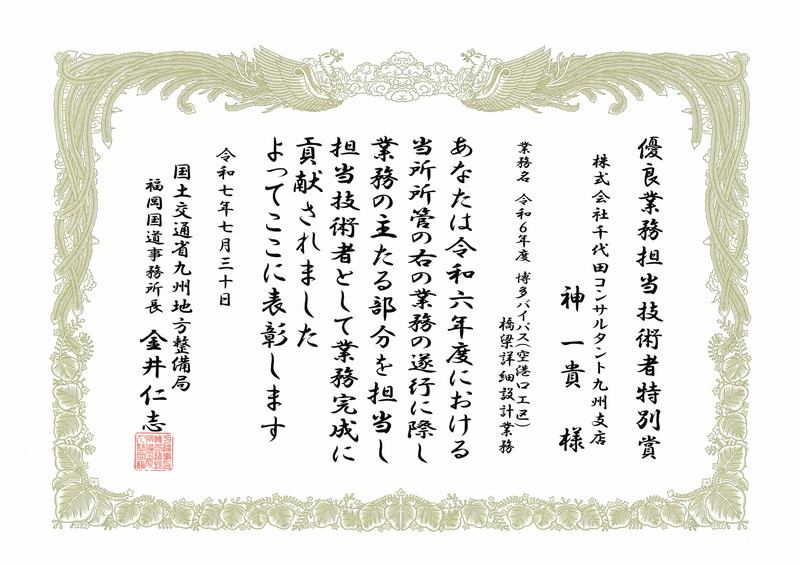 優良業務担当技術者特別賞
株式会社千代田コンサルタント九州支店
神一貴 様
業務名 令和6年度 博多バイパス(空港口工区)
橋梁詳細設計業務
あなたは令和六年度における
当所所管の右の業務の遂行に際し
業務の主たる部分を担当し
担当技術者として業務完成に
貢献されました
よってここに表彰します
令和七年七月三十日
国土交通省九州地方整備局
福岡国道事務所長 金井仁志